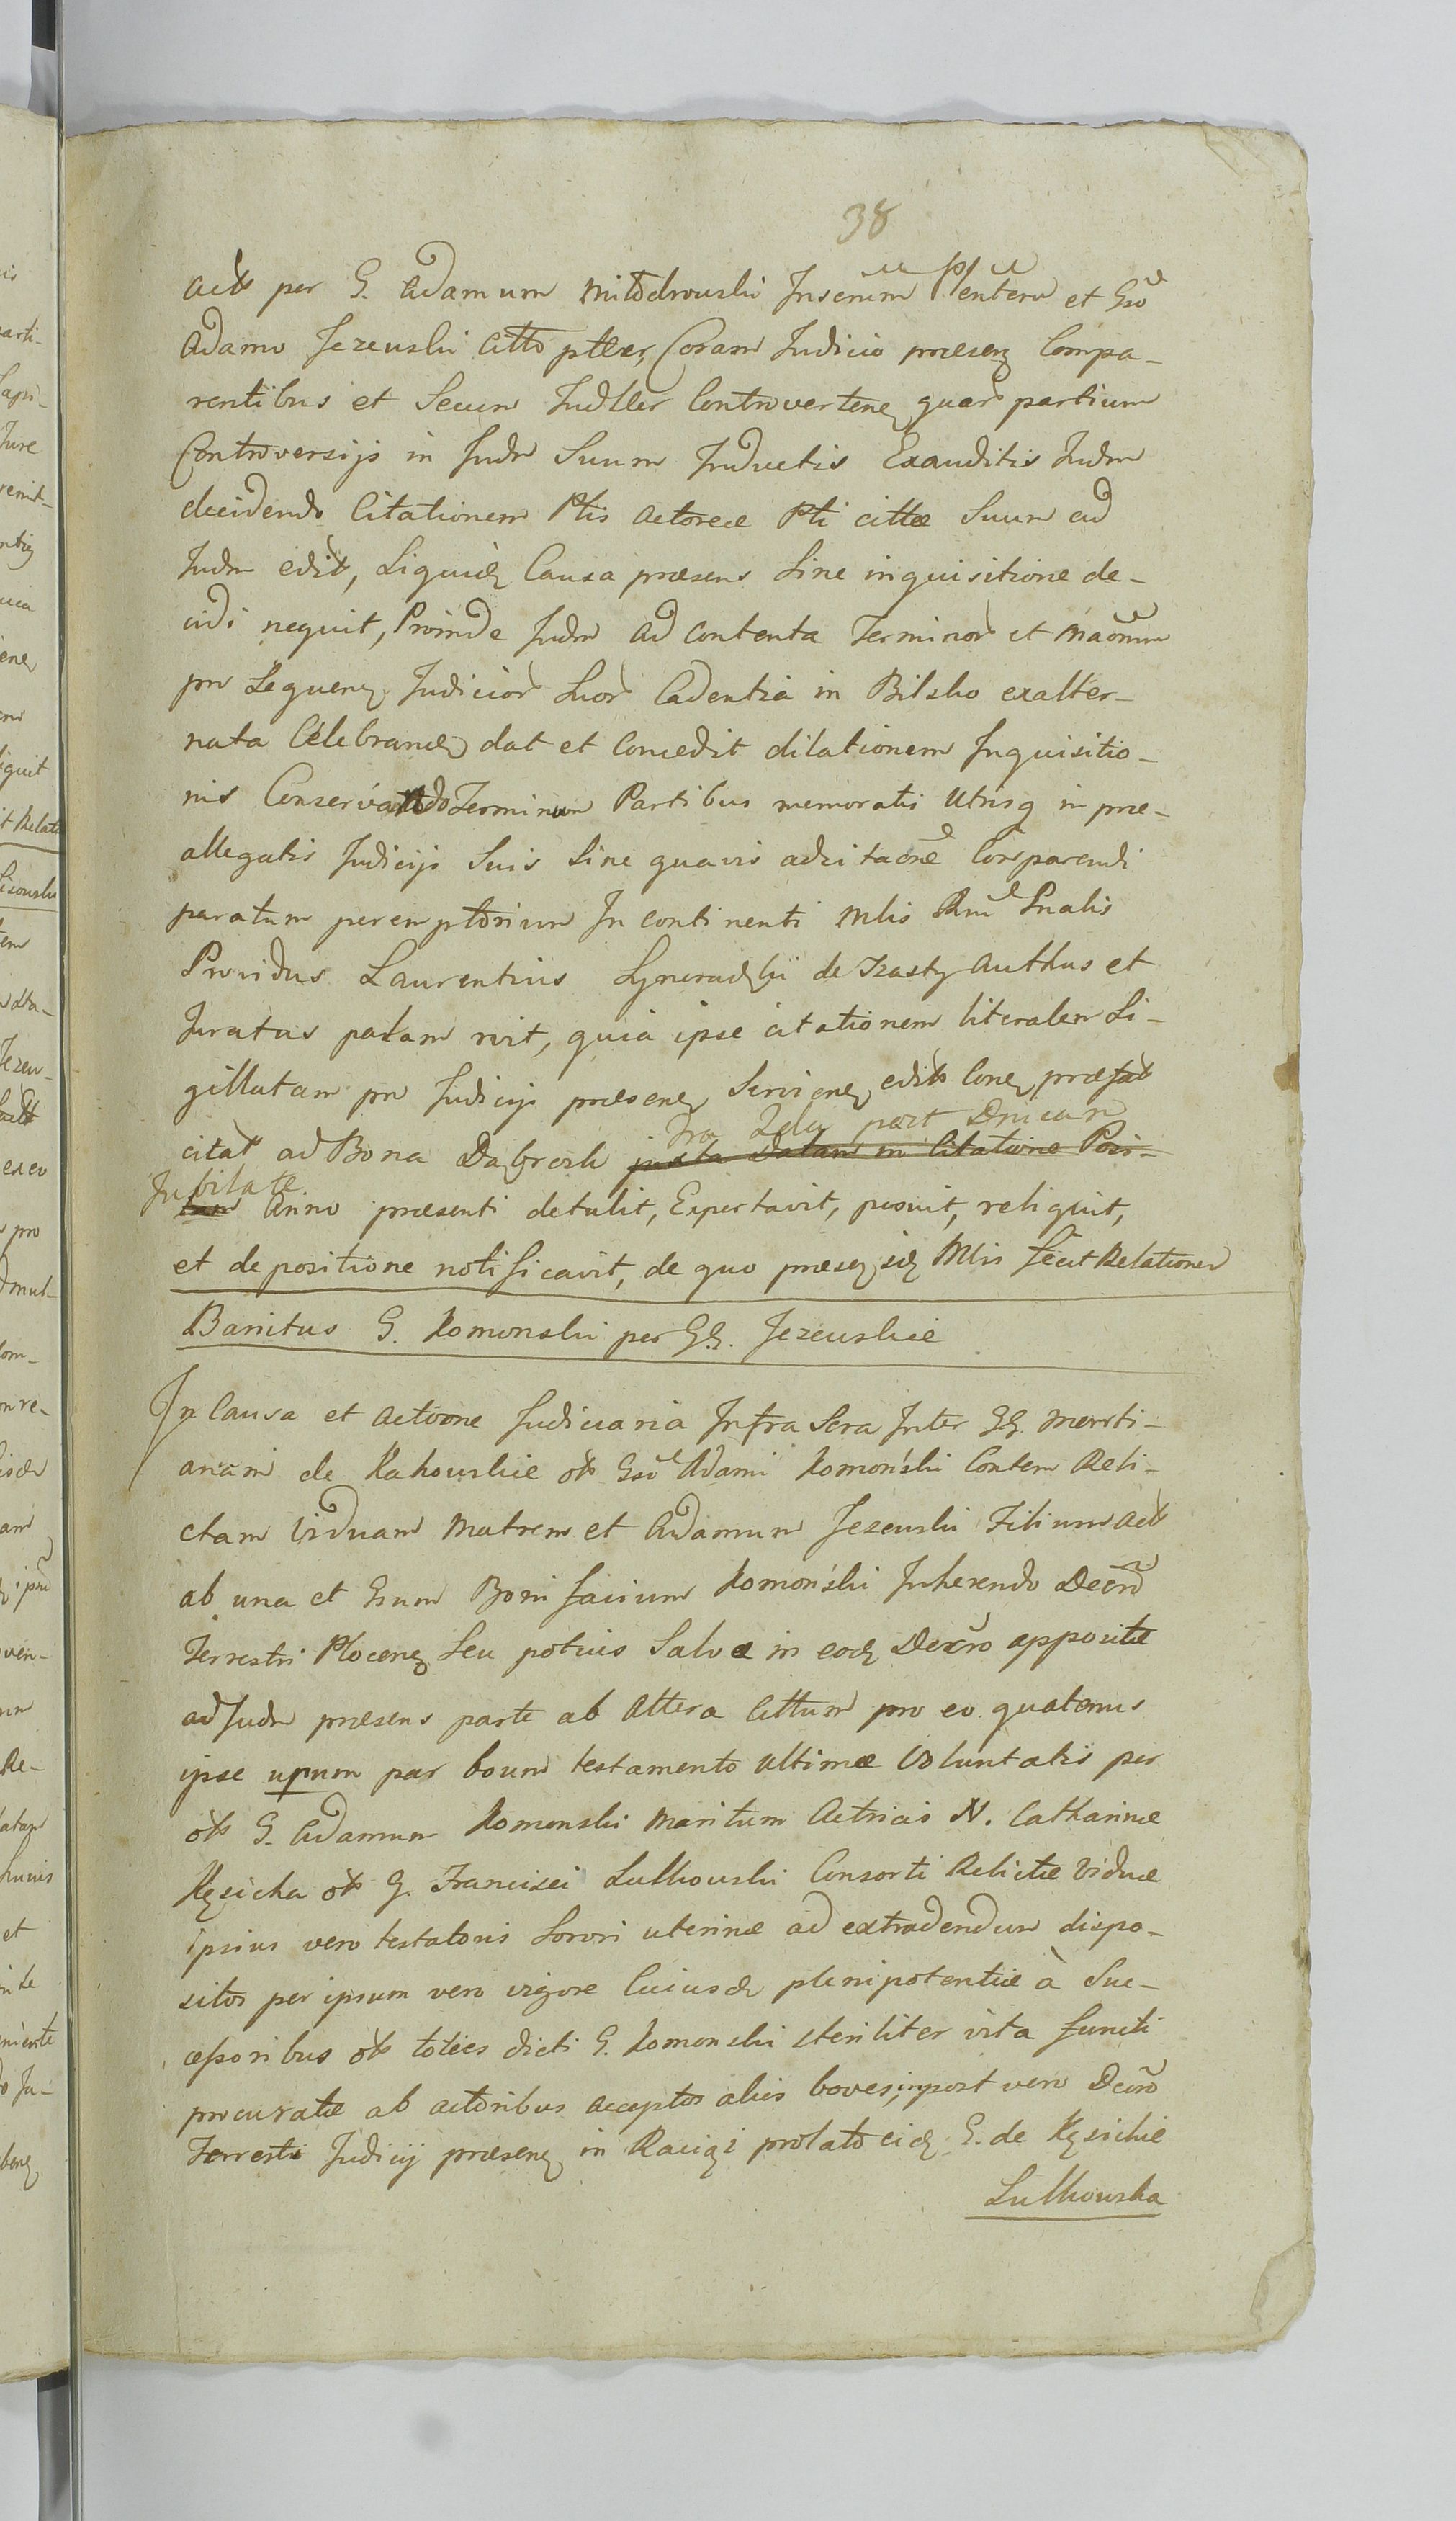 38
actt per G. Adamum Miłodrowski Insertum Plentem et Gso
Adamo Jezewski Citto ptter, Coram Judicio praesenz Compa-
rentibus et Secum Judller Controvertenz quar partium
Controversijs in Judm Suum Inductis Exauditis Judm
decidendo Citationem Ptis actorece Pti cittae Suum ad
Judm edit, Siquidz Causa praesens Sine inquisitione de-
cidi nequit, Proinde Judm ad contenta Terminor et
pro Sequenz Judicior Suor Cadentia in Bilsko exalter-
nata Celebrand dat et Concedit dilationem Inquisitio-
nis Conservando Terminum Partibus memoratis Utrisq in prae-
allegatis Judicijs Suis Sine quavis adcitaone Comparendi
paratum peremptorium In continenti Mlis Rnu Gnalis
Providus Laurentius de Trzasty Authus et
Juratus palam rvit, quia ipse citationem literalem Si-
gillatam pro Judicijs praesenz Servienz edit Conz praefat
citat ad Bona Dąbrosk juxta Datam in Citatione Posi-
fra 2da post Dnicam
Jubilate
tam Anno praesenti detulit, Exportavit, posuit, reliquit,
et de positione notificavit, de quo praesz idz Mlis fecit Relationem
Banitus G. Komonski per GG. Jezewskie
In Causa et actione Judiciaria Infra Scra Inter GG. Marti-
anam de Rakowskie olt Gsi Adami Komoński Contem Reli-
ctam Viduam Matrem et Adamum Jezewski Filium actt
ab una et Gsum Bonifacium Komoński Inherendo Decro
Terrestri Plocenz Seu potius Salvae in eodz Decro appositae
ad Judm praesens parte ab altera Cittum pro eo quatenus
ipse unum par boum testamento ultimae Voluntatis per
olt G. Adamum Komonski Maritum Actricis N. Catharinae
Kęsicka olt G. Francisci Lutkowski Consorti Relictae Viduae
ipsius vero testatoris Sorori uterinae ad extradendum dispo-
sitos per ipsum vero vigore Cuiusdz plenipotentiae à Suc-
cessoribus olt toties dicti G. Komonski steriliter vita functi
procuratae ab actoribus acceptos alius boves, inpost vero Decro
Terrestri Judicij praesenz in Raciąż prolato eidz G. de Kęsickie
Lutkowska